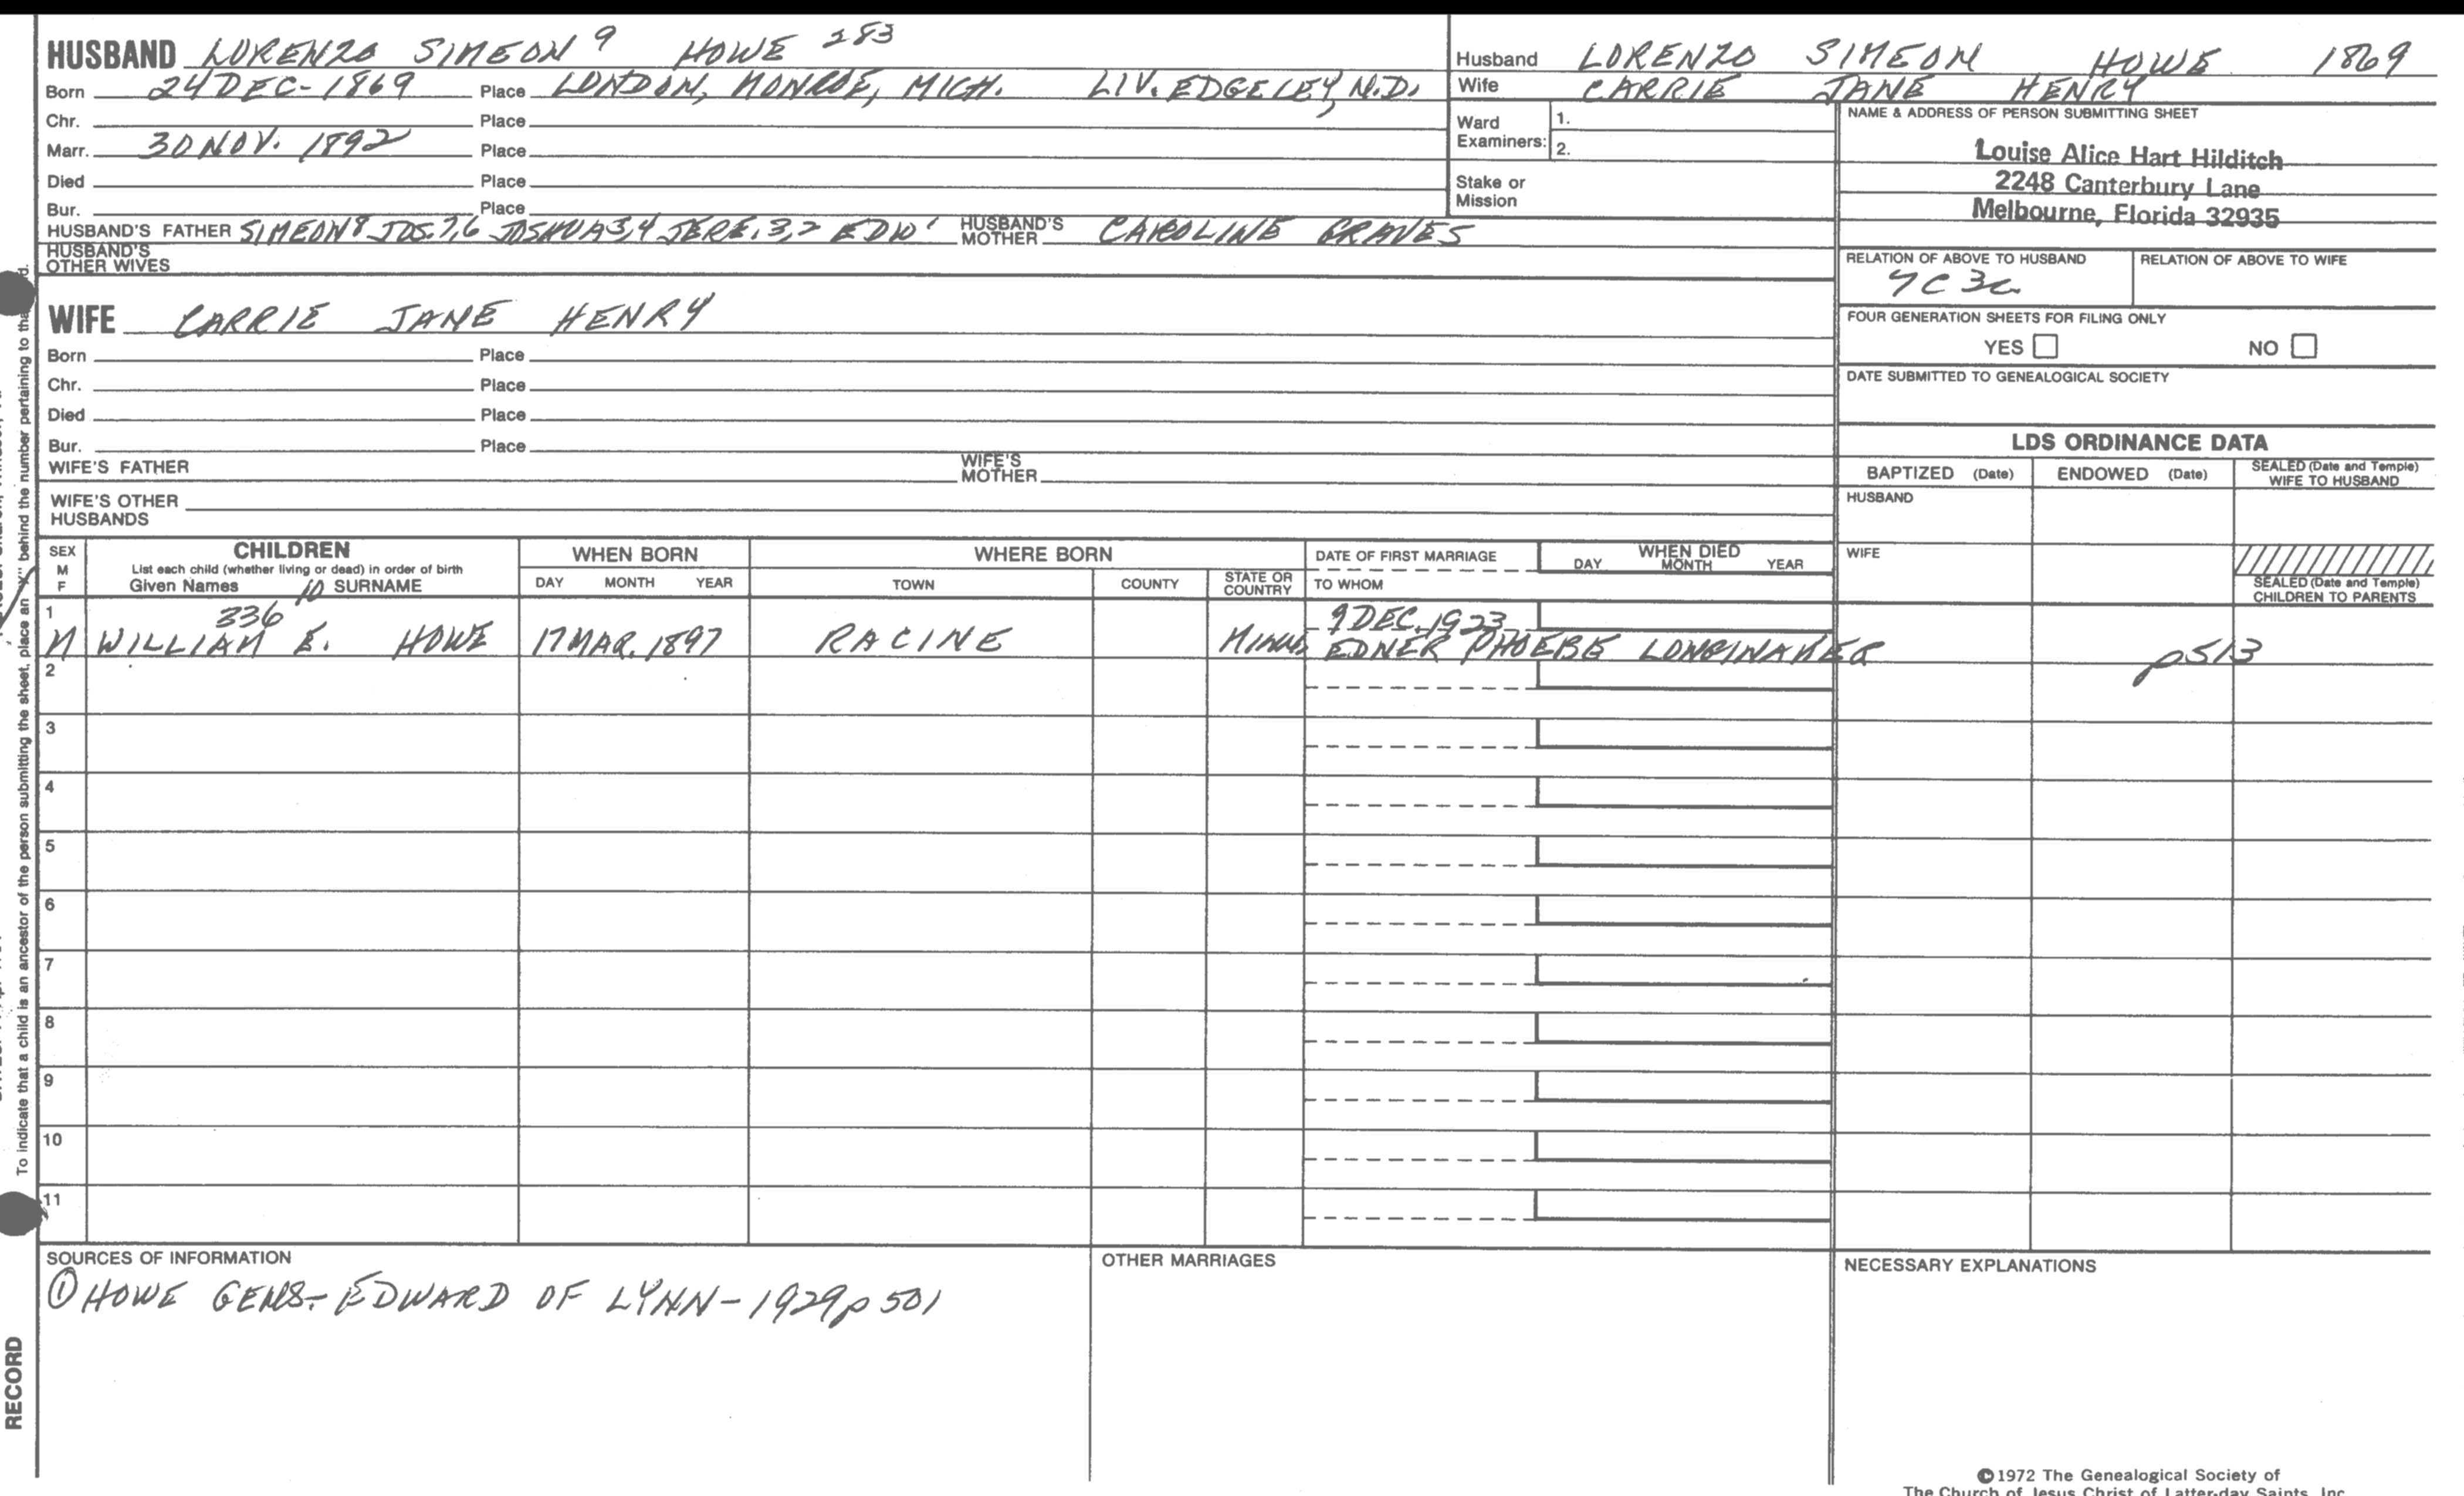 HUSBAND LORENZO SIMEON 9 HOWE 283
Born 24 DEC-1869 Place LONDON, MONROE, MICH. LIV. EDGELEY, N.D.
Chr. Place
Marr. 30 NOV. 1892 Place
Died Place
Bur. Place
HUSBAND'S FATHER SIMEON 8 JOS. 7,6 JOSHUA 5,4 JERE. 3,2 EDW 1 HUSBAND'S MOTHER CAROLINE GRAVES
HUSBAND'S OTHER WIVES
Husband LORENZO SIMEON HOWE 1869
Wife CARRIE JANE HENRY
Ward Examiners: 1.
2.
Stake or Mission
NAME & ADDRESS OF PERSON SUBMITTING SHEET
Louise Alice Hart Hilditch
2248 Canterbury Lane
Melbourne, Florida 32935
RELATION OF ABOVE TO HUSBAND RELATION OF ABOVE TO WIFE
7C 3
FOUR GENERATION SHEETS FOR FILING ONLY
YES NO
DATE SUBMITTED TO GENEALOGICAL SOCIETY
WIFE CARRIE JANE HENRY
Born Place
Chr. Place
Died Place
Bur. Place
WIFE'S FATHER WIFE'S MOTHER
WIFE'S OTHER HUSBANDS
LDS ORDINANCE DATA
BAPTIZED (Date) ENDOWED (Date) SEALED (Date and Temple) WIFE TO HUSBAND
HUSBAND
WIFE
SEALED (Date and Temple) CHILDREN TO PARENTS
SEX M F
CHILDREN
List each child (whether living or dead) in order of birth
Given Names 10 SURNAME
WHEN BORN
DAY MONTH YEAR
WHERE BORN
TOWN COUNTY STATE OR COUNTRY
DATE OF FIRST MARRIAGE
TO WHOM
WHEN DIED
DAY MONTH YEAR
1 336 9 DEC. 1923
M WILLIAM E. HOWE 17 MAR. 1897 RACINE MINN. EDNER PHOEBE LONGINAKER p513
2
3
4
5
6
7
8
9
10
11
SOURCES OF INFORMATION
① HOWE GENS- EDWARD OF LYNN-1929 p 501
OTHER MARRIAGES
NECESSARY EXPLANATIONS
To indicate that a child is an ancestor of the person submitting the sheet, place an "X" behind the number pertaining to
RECORD
©1972 The Genealogical Society of
The Church of Jesus Christ of Latter-day Saints, Inc.